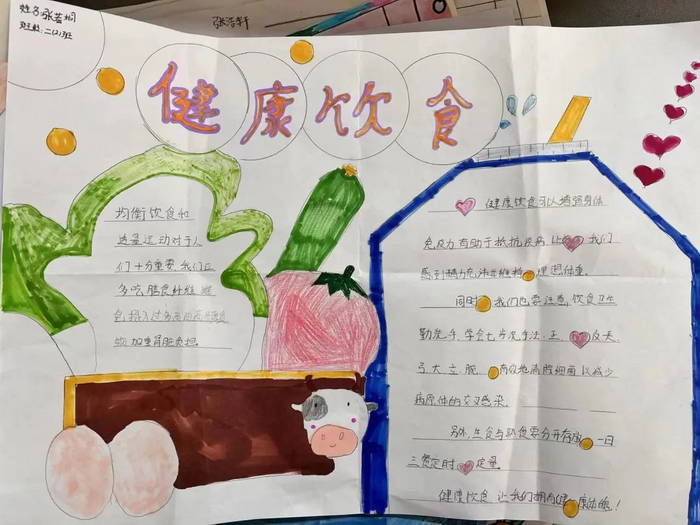 姓名:张若桐
班级:二(2)班
张若轩
健康饮食
均衡饮食和
适量运动对于人
们十分重要,我们应
多吃膳食纤维,避
免摄入过多
加重肾脏负担
健康饮食可以增强身体
免疫力有助于抵抗疾病,让我们
感到精力充沛并维持理想体重。
同时我们也要注意,饮食卫生
勤洗手,学会七步洗手法:内、外、夹、
弓、大、立、腕。有效地清除细菌以减少
病原体的交叉感染。
另外,生食与熟食要分开存放,一日
三餐定时定量。
健康饮食,让我们拥有健康体魄!